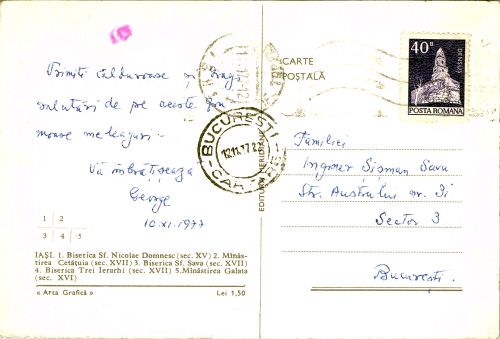 Primiți călduroase și dragi
salutări de pe aceste fru
moase meleaguri.
Vă îmbrățișează
George
10.XI.1977
1 2
3 4 5
IAȘI. 1. Biserica Sf. Nicolae Domnesc (sec. XV) 2. Mînăs-
tirea Cetățuia (sec. XVII) 3. Biserica Sf. Sava (sec. XVII)
4. Biserica Trei Ierarhi (sec. XVII) 5. Mînăstirea Galata
(sec. XVI)
« Arta Grafică »
Lei 1,50
EDITURA MERIDIANE
BUCUREȘTI
12.11.77
CARTARE
CARTE
POȘTALĂ
40B
DENSUȘ
POSTA ROMANA
Familiei
Inginer Șișman Savu
Str. Austrului nr. 31
Sector 3
București.